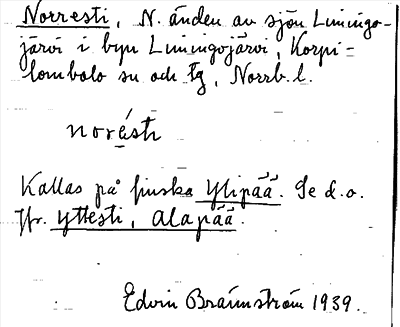 Norresti, N. änden av sjön Liningo-
järvi i byn Liningojärvi, Korpi-
lombolo sn och tg, Norrb. l.
norésti
Kallas på finska Ylipää. Se d. o.
Jfr. yttesti, Alapää.
Edvin Brännström 1939.